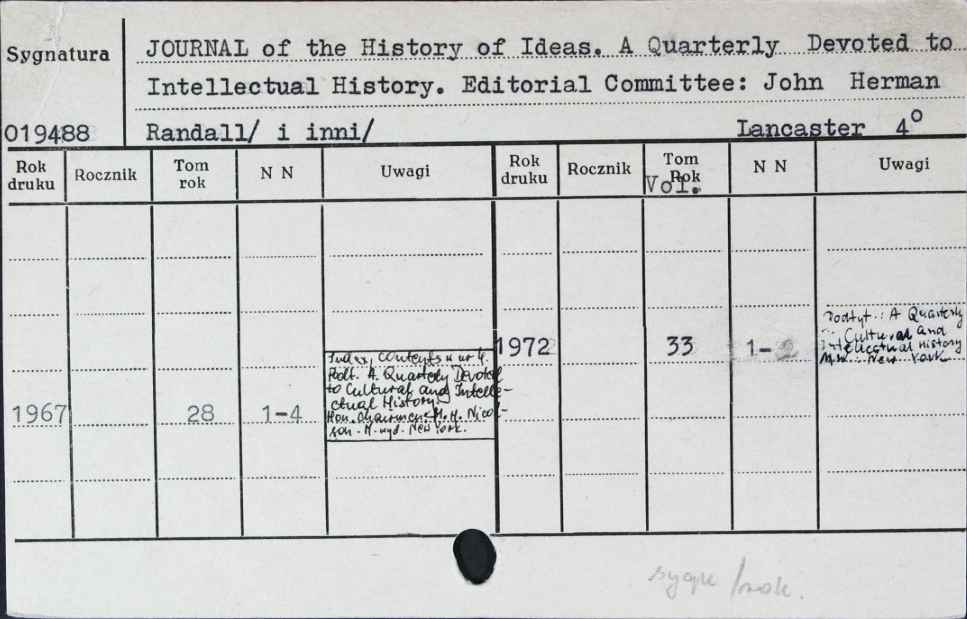 Sygnatura
JOURNAL of the History of Ideas. A Quarterly Devoted to
Intellectual History. Editorial Committee: John Herman
019488 Randall/ i inni/ Lancaster 4⁰
Rok druku Rocznik Tom rok N N Uwagi Rok druku Rocznik Tom Rok Vol. N N Uwagi
Index, contents w nr 4.
Podt. A Quarterly Devoted
to Cultural and Intelle-
ctual History.
Hon. Chairmen: M. H. Nicol-
son. M. wyd. New York.
1967 28 1-4
1972 33 1-2
Podtyt.: A Quarterly
Cultural and
Intellectual History
M.w.: New York